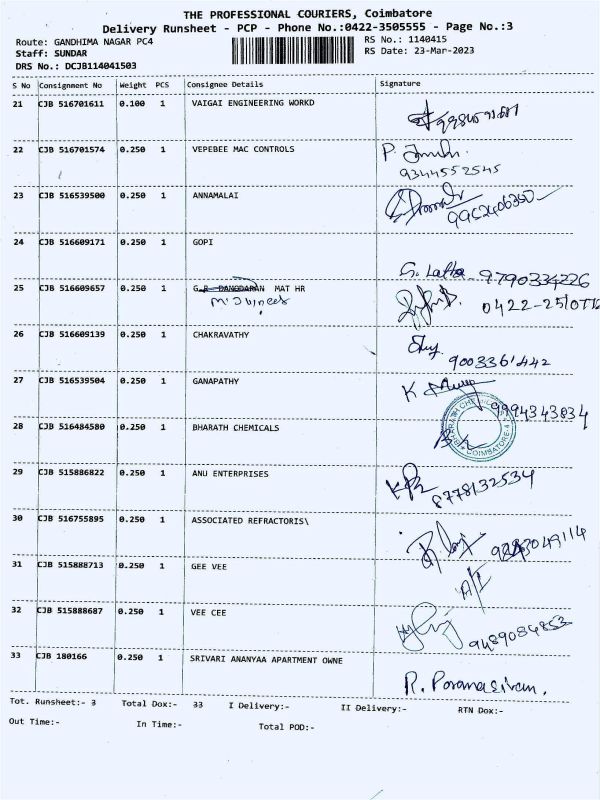 THE PROFESSIONAL COURIERS, Coimbatore
Delivery Runsheet - PCP - Phone No.:0422-3505555 - Page No.:3
Route: GANDHIMA NAGAR PC4
RS No.: 1140415
Staff: SUNDAR
RS Date: 23-Mar-2023
DRS No.: DCJB114041503
S No Consignment No Weight PCS Consignee Details Signature
21 CJB 516701611 0.100 1 VAIGAI ENGINEERING WORKD
22 CJB 516701574 0.250 1 VEPEBEE MAC CONTROLS P.
9344552545
23 CJB 516539500 0.250 1 ANNAMALAI
9952406350
24 CJB 516609171 0.250 1 GOPI
G. Latha 9790334226
25 CJB 516609657 0.250 1 G.R. DAMODARAN MAT HR
0422-2510
26 CJB 516609139 0.250 1 CHAKRAVATHY
9003361442
27 CJB 516539504 0.250 1 GANAPATHY K
9994343834
28 CJB 516484580 0.250 1 BHARATH CHEMICALS
BHARATH CHEMICALS COIMBATORE-4
29 CJB 515886822 0.250 1 ANU ENTERPRISES
8778132534
30 CJB 516755895 0.250 1 ASSOCIATED REFRACTORIS\
31 CJB 515888713 0.250 1 GEE VEE
32 CJB 515888687 0.250 1 VEE CEE
9489084853
33 CJB 180166 0.250 1 SRIVARI ANANYAA APARTMENT OWNE
R. Paramasivam.
Tot. Runsheet:- 3 Total Dox:- 33 I Delivery:- II Delivery:- RTN Dox:-
Out Time:- In Time:- Total POD:-